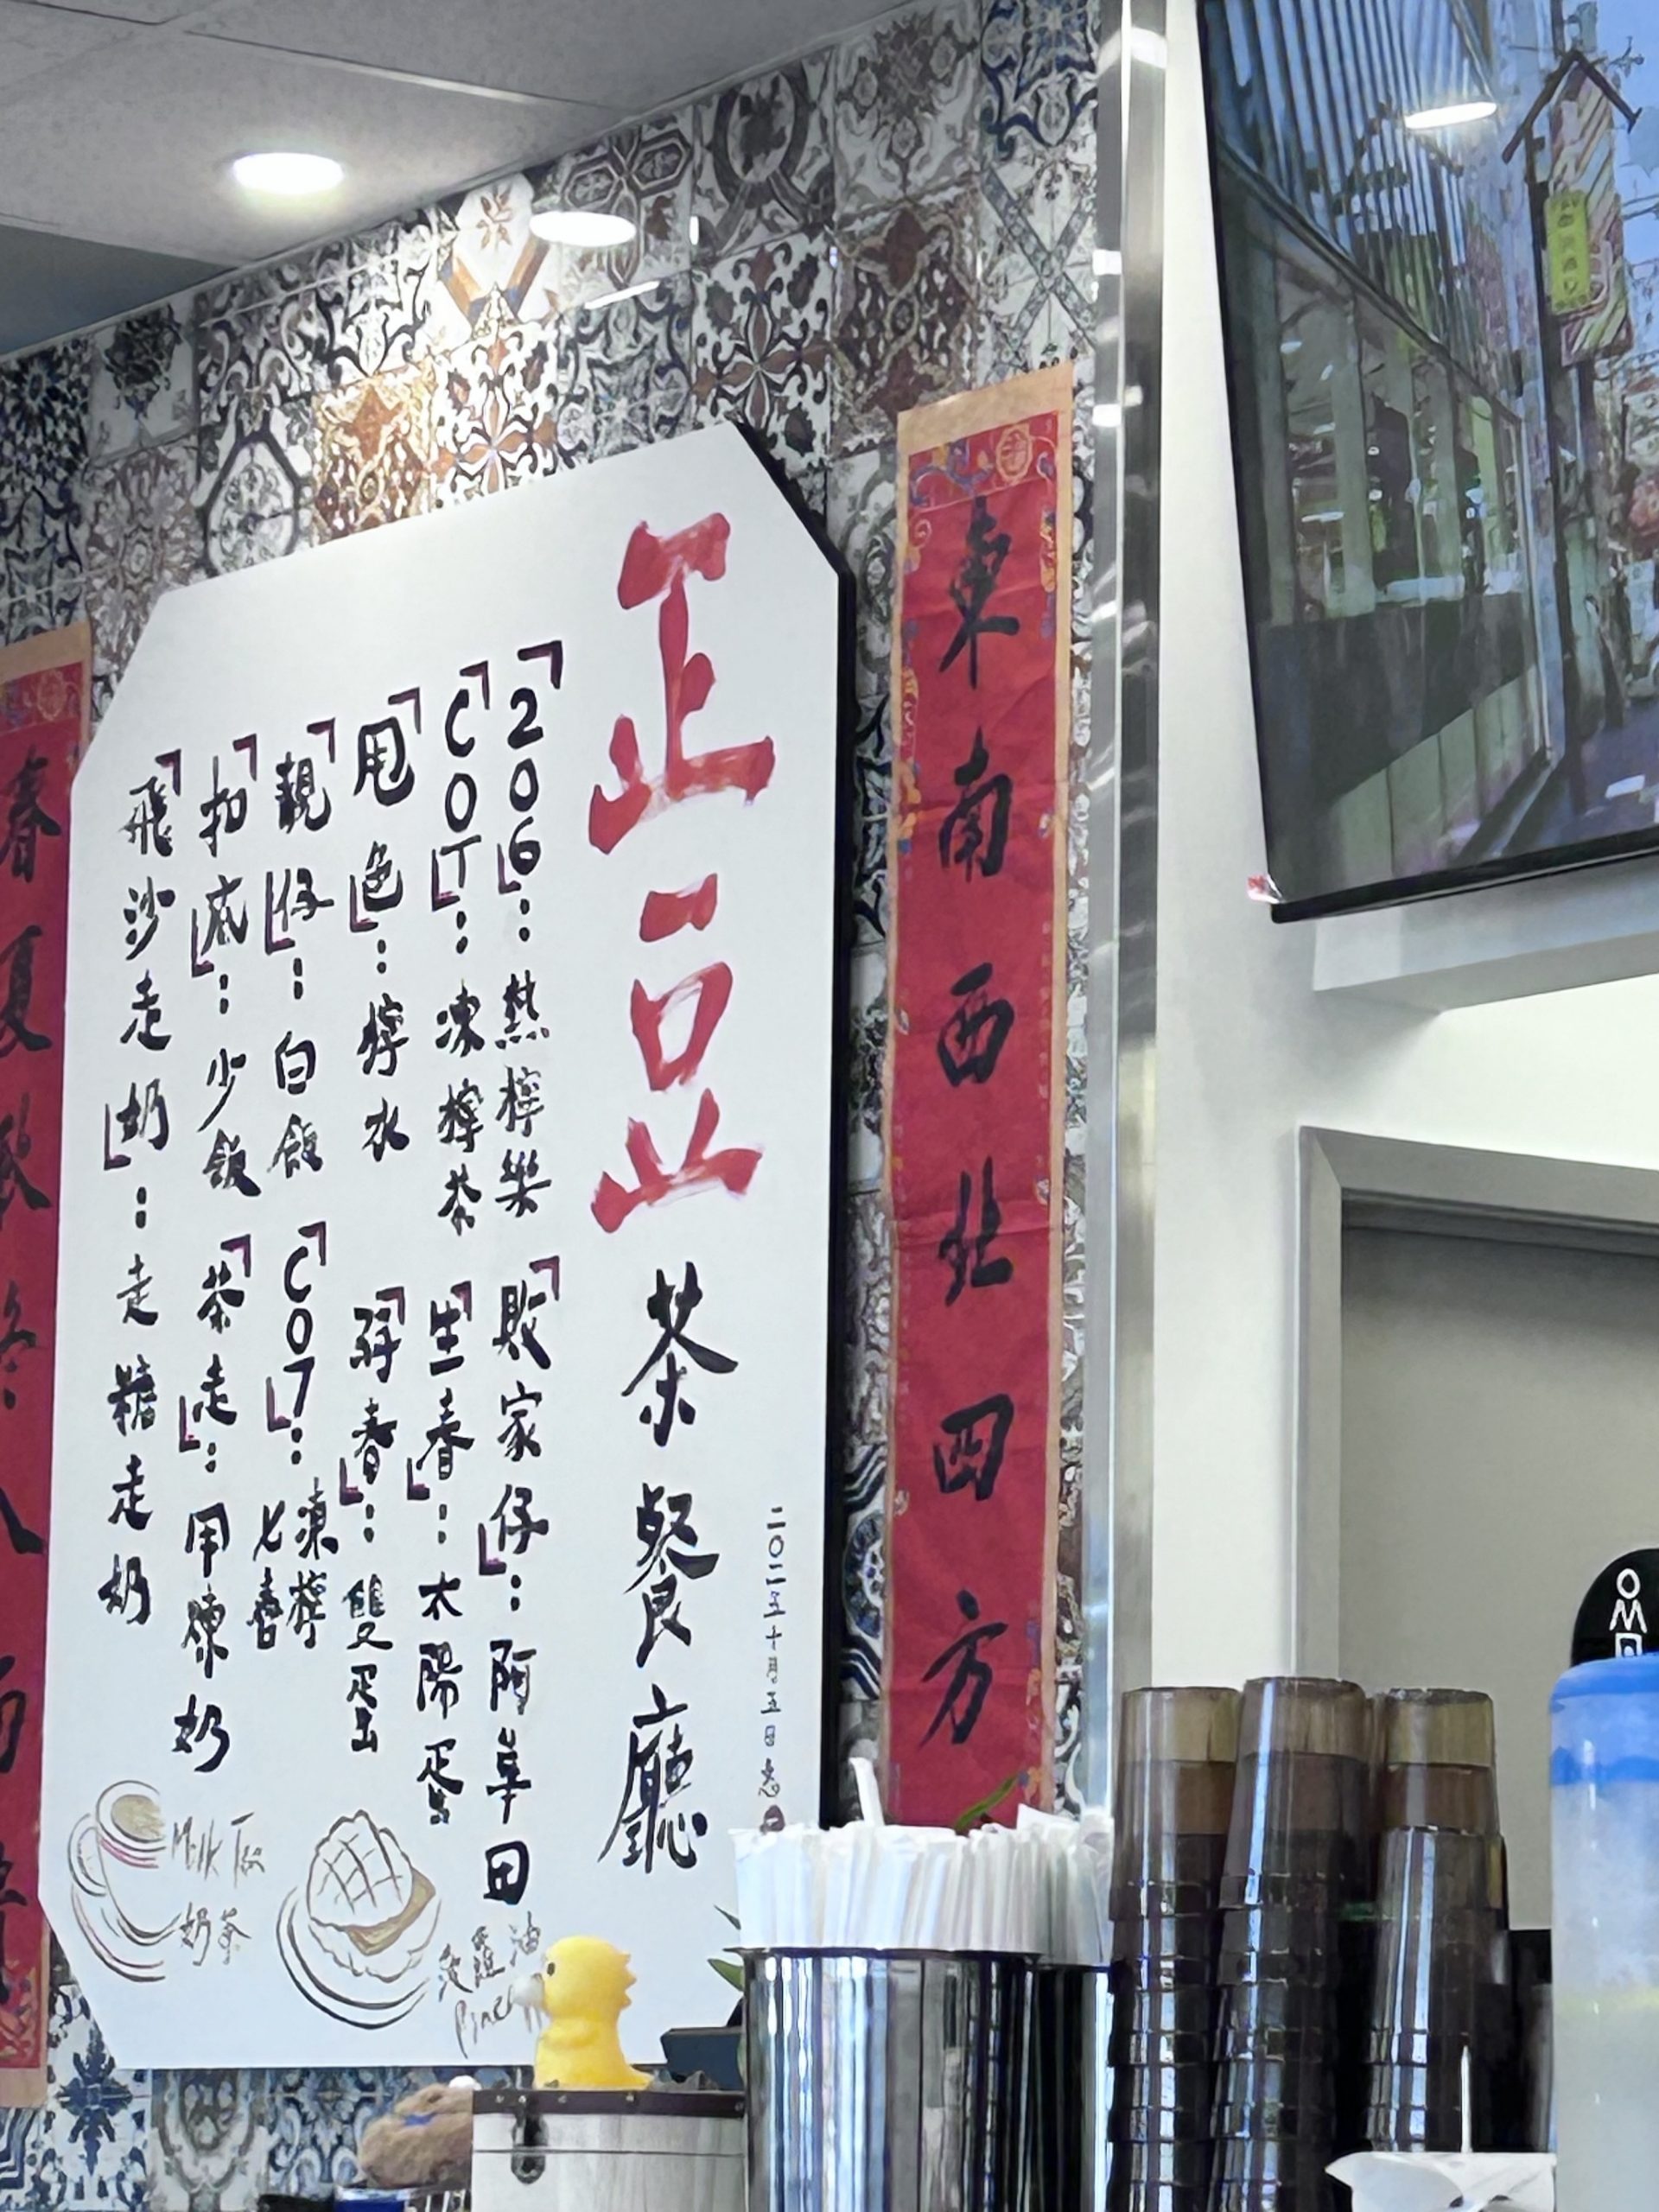 東南西北四方
二〇二五十月五日
正豆茶餐廳
「206」：熱檸樂
「敗家仔」：阿華田
「COT」：凍檸茶
「生春」：太陽蛋
「甩色」：檸水
「孖春」：雙蛋
「靚仔」：白飯
「CO7」：凍檸七喜
「扣底」：少飯
「茶走」：用煉奶
「飛沙走奶」：走糖走奶
Milk Tea
奶茶
菠蘿油
春夏秋冬八